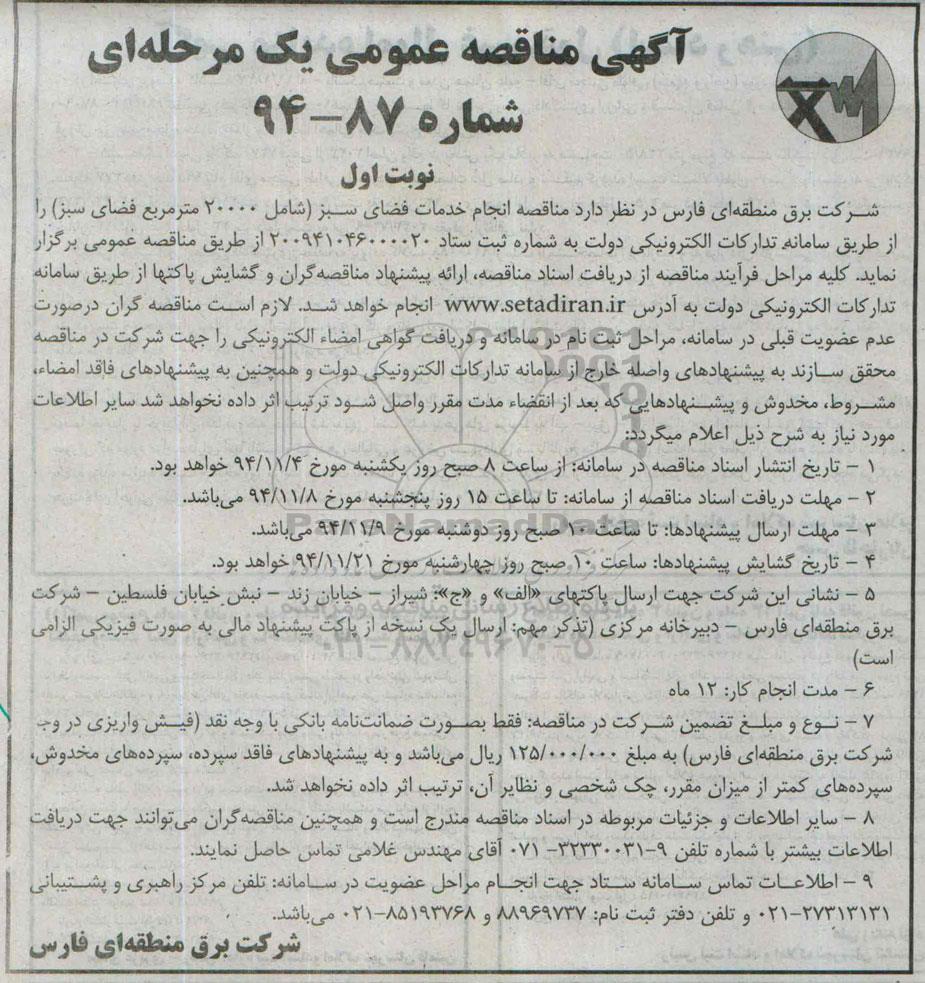 آگهی مناقصه عمومی یک مرحله‌ای
شماره ۸۷–۹۴
نوبت اول
شرکت برق منطقه‌ای فارس در نظر دارد مناقصه انجام خدمات فضای سبز (شامل ۲۰۰۰۰ مترمربع فضای سبز) را
از طریق سامانه تدارکات الکترونیکی دولت به شماره ثبت ستاد ۲۰۰۹۴۱۰۴۶۰۰۰۰۲۰ از طریق مناقصه عمومی برگزار
نماید. کلیه مراحل فرآیند مناقصه از دریافت اسناد مناقصه، ارائه پیشنهاد مناقصه‌گران و گشایش پاکتها از طریق سامانه
تدارکات الکترونیکی دولت به آدرس www.setadiran.ir انجام خواهد شد. لازم است مناقصه گران درصورت
عدم عضویت قبلی در سامانه، مراحل ثبت نام در سامانه و دریافت گواهی امضاء الکترونیکی را جهت شرکت در مناقصه
محقق سازند به پیشنهادهای واصله خارج از سامانه تدارکات الکترونیکی دولت و همچنین به پیشنهادهای فاقد امضاء،
مشروط، مخدوش و پیشنهادهایی که بعد از انقضاء مدت مقرر واصل شود ترتیب اثر داده نخواهد شد سایر اطلاعات
مورد نیاز به شرح ذیل اعلام میگردد:
۱ – تاریخ انتشار اسناد مناقصه در سامانه: از ساعت ۸ صبح روز یکشنبه مورخ ۹۴/۱۱/۴ خواهد بود.
۲ – مهلت دریافت اسناد مناقصه از سامانه: تا ساعت ۱۵ روز پنجشنبه مورخ ۹۴/۱۱/۸ می‌باشد.
۳ – مهلت ارسال پیشنهادها: تا ساعت ۱۰ صبح روز دوشنبه مورخ ۹۴/۱۱/۹ می‌باشد.
۴ – تاریخ گشایش پیشنهادها: ساعت ۱۰ صبح روز چهارشنبه مورخ ۹۴/۱۱/۲۱ خواهد بود.
۵ – نشانی این شرکت جهت ارسال پاکتهای «الف» و «ج»: شیراز – خیابان زند – نبش خیابان فلسطین – شرکت
برق منطقه‌ای فارس – دبیرخانه مرکزی (تذکر مهم: ارسال یک نسخه از پاکت پیشنهاد مالی به صورت فیزیکی الزامی
است)
۶ – مدت انجام کار: ۱۲ ماه
۷ – نوع و مبلغ تضمین شرکت در مناقصه: فقط بصورت ضمانت‌نامه بانکی یا وجه نقد (فیش واریزی در وجه
شرکت برق منطقه‌ای فارس) به مبلغ ۱۲۵/۰۰۰/۰۰۰ ریال می‌باشد و به پیشنهادهای فاقد سپرده، سپرده‌های مخدوش،
سپرده‌های کمتر از میزان مقرر، چک شخصی و نظایر آن، ترتیب اثر داده نخواهد شد.
۸ – سایر اطلاعات و جزئیات مربوطه در اسناد مناقصه مندرج است و همچنین مناقصه‌گران می‌توانند جهت دریافت
اطلاعات بیشتر با شماره تلفن ۹–۳۲۳۳۰۰۳۱– ۰۷۱ آقای مهندس غلامی تماس حاصل نمایند.
۹ – اطلاعات تماس سامانه ستاد جهت انجام مراحل عضویت در سامانه: تلفن مرکز راهبری و پشتیبانی
۰۲۱–۲۷۳۱۳۱۳۱ و تلفن دفتر ثبت نام: ۸۸۹۶۹۷۳۷ و ۸۵۱۹۳۷۶۸–۰۲۱ می‌باشد.
شرکت برق منطقه‌ای فارس
ParsNamadData